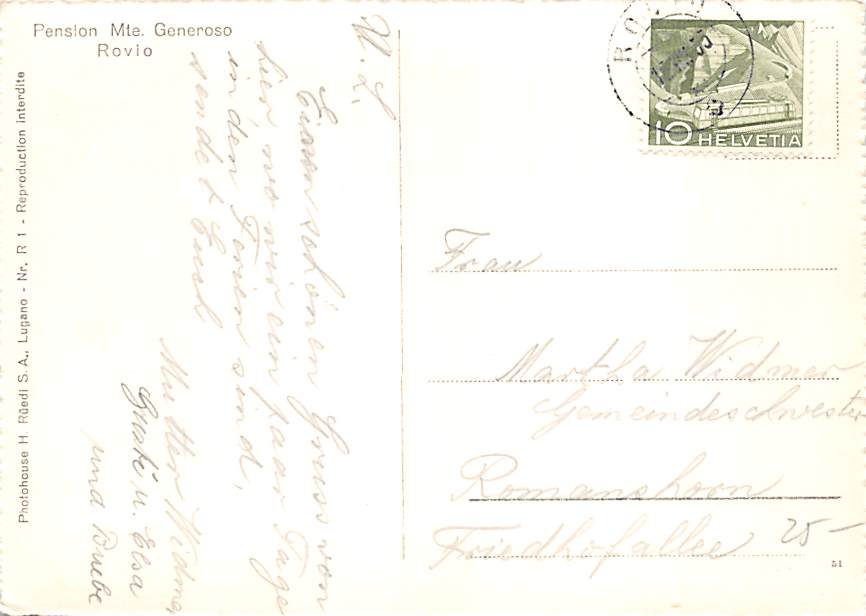 Pension Mte. Generoso
Rovio
Photohouse H. Rüedi S. A., Lugano - Nr. R 1 - Reproduction interdite
M. L.
Einen schönen Gruss von
hier, wo wir ein paar Tage
in den Ferien sind,
sendet Euch
Mutter Widmer
u. Elsa
und Buebe
ROVIO
10 HELVETIA
Frau
Martha Widmer
Gemeindeschwester
Romanshorn
Friedhofallee
25-
51